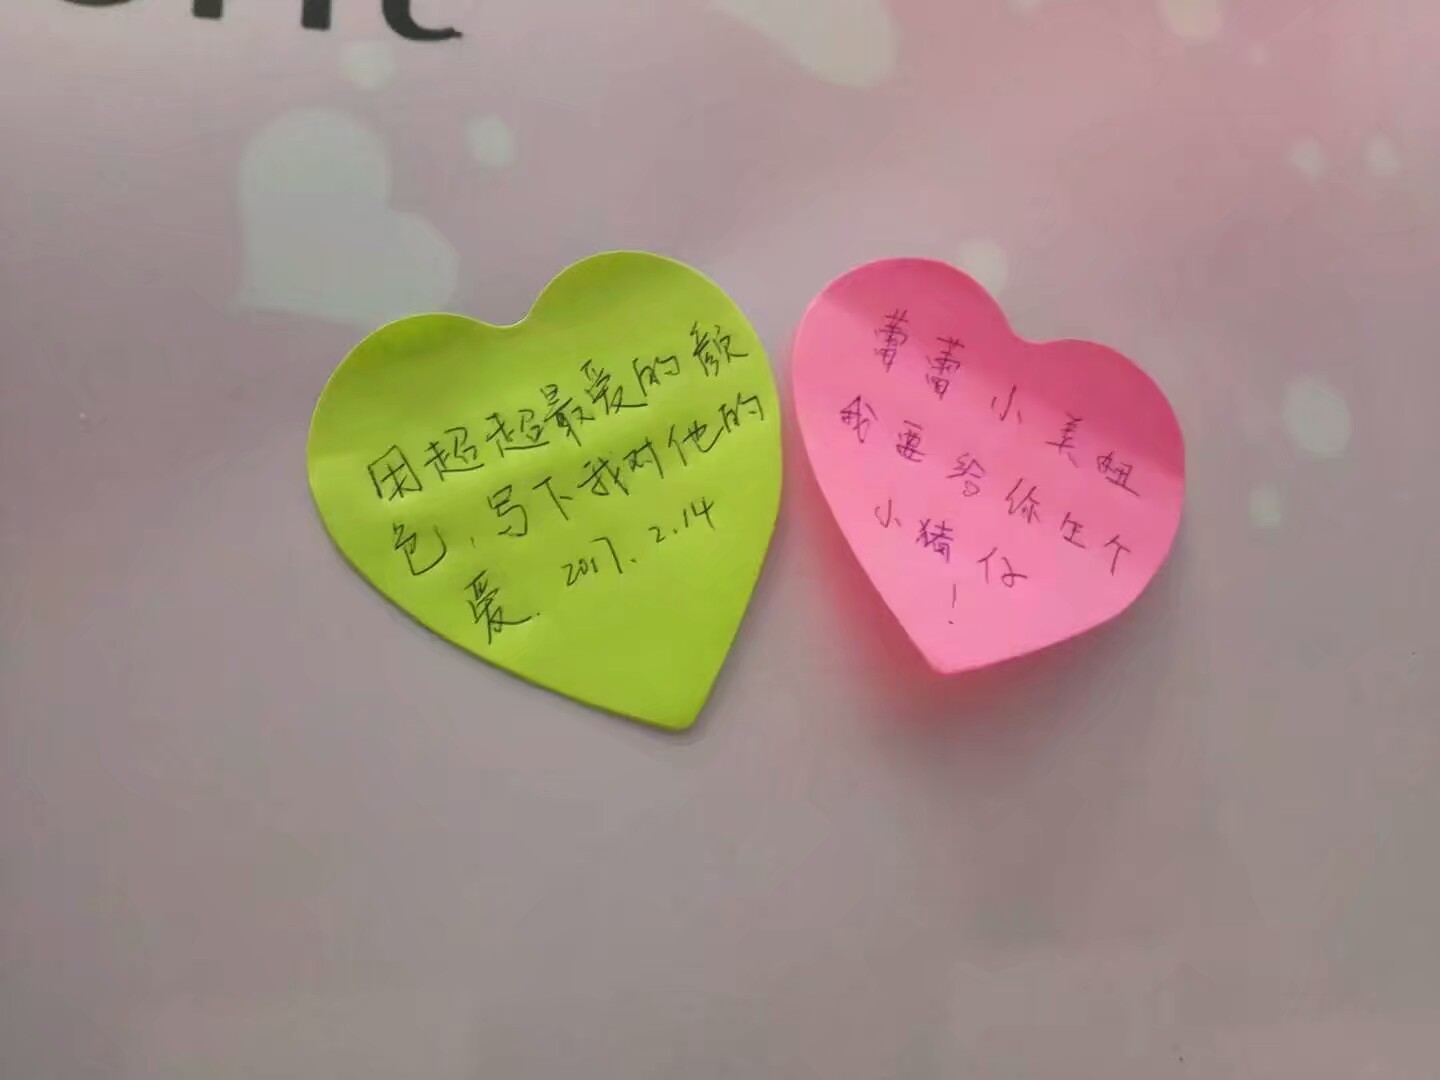 用超超最爱的颜
色,写下我对他的
爱. 2017.2.14
蕾蕾小美妞
我要给你生个
小猪仔
!